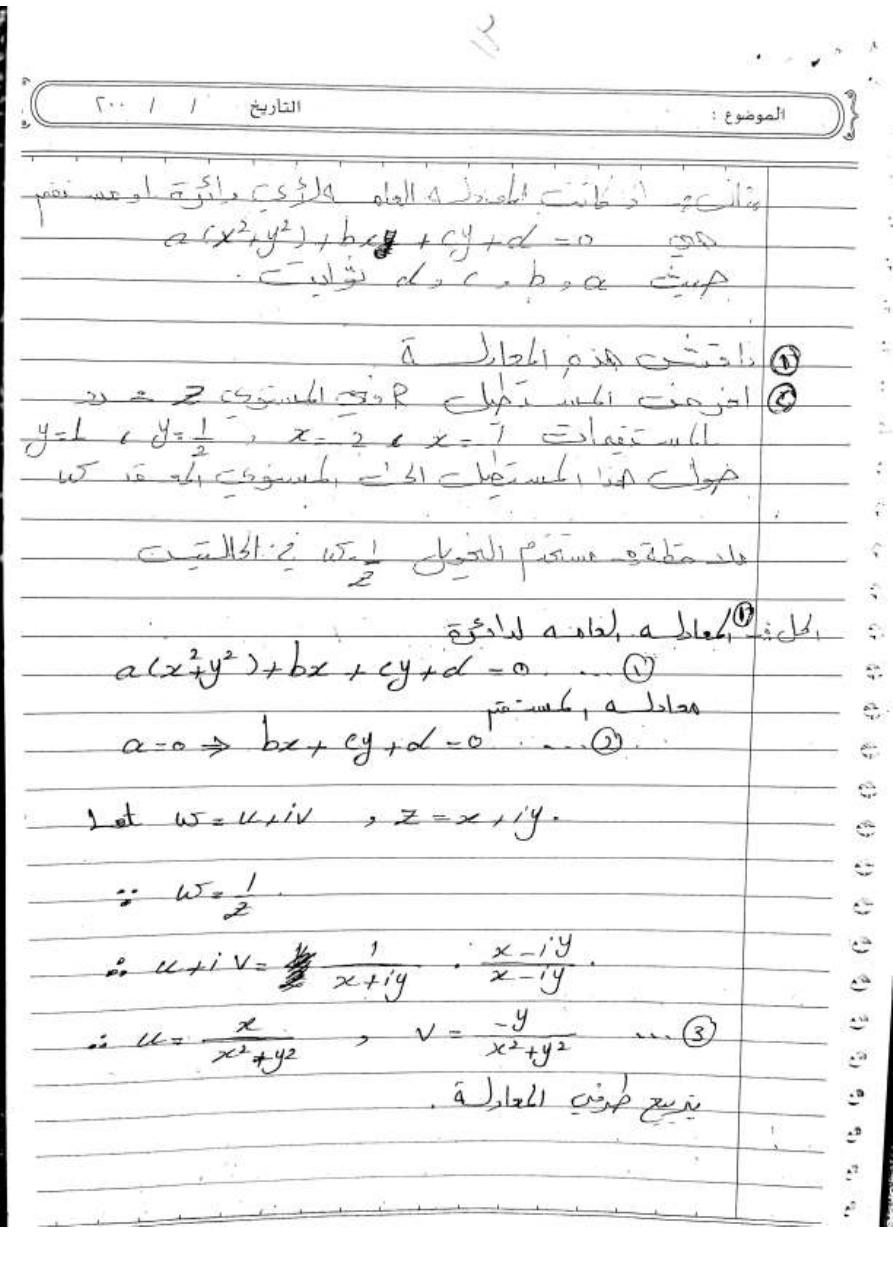 الموضوع : التاريخ / / ٢٠٠
مثال :- اذ كانت المعادلة العامه لأي دائرة او مستقيم
هي a(x²+y²)+bx+cy+d=0
حيث a , b , c , d ثوابت .
① ناقش هذه المعادلة
② المستطيل R في المستوى Z
المستقيمات x=1 , x=2 , y=1/2 , y=1
حول هذا المستطيل الى المستوى المعقد w
ملاحظة :- مستخدم التحويل w=1/z في الحالتين
الحل :- ① المعادلة العامه لدائرة
a(x²+y²)+bx+cy+d=0 ..... ①
معادلة المستقيم
a=0 ⇒ bx+cy+d=0 ..... ②
Let w=u+iv , z=x+iy.
∵ w=1/z .
∴ u+iv= 1/(x+iy) . (x-iy)/(x-iy) .
∴ u= x/(x²+y²) , v= -y/(x²+y²) .... ③
بتربيع طرفي المعادلة .